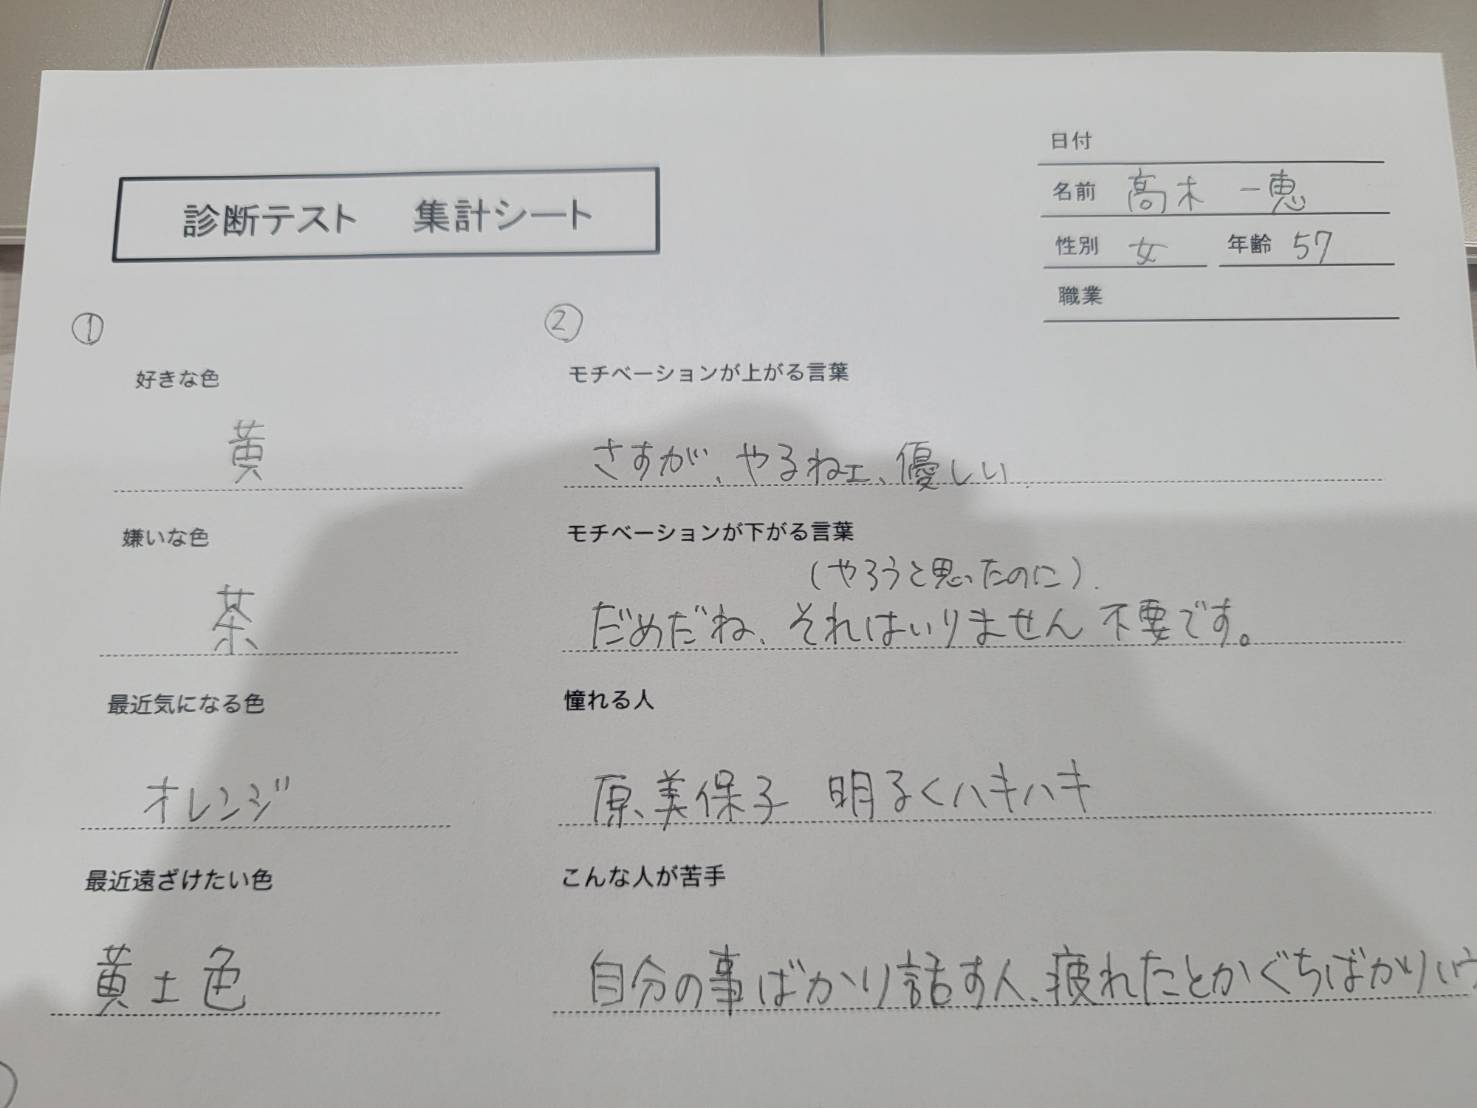 日付
診断テスト 集計シート
名前 髙木 一恵
性別 女 年齢 57
職業
①
好きな色
黄
嫌いな色
茶
最近気になる色
オレンジ
最近遠ざけたい色
黄土色
②
モチベーションが上がる言葉
さすが、やるねェ、優しい
モチベーションが下がる言葉
(やろうと思ったのに).
だめだね、それはいりません 不要です。
憧れる人
原、美保子 明るくハキハキ
こんな人が苦手
自分の事ばかり話す人、疲れたとかぐちばかりいう